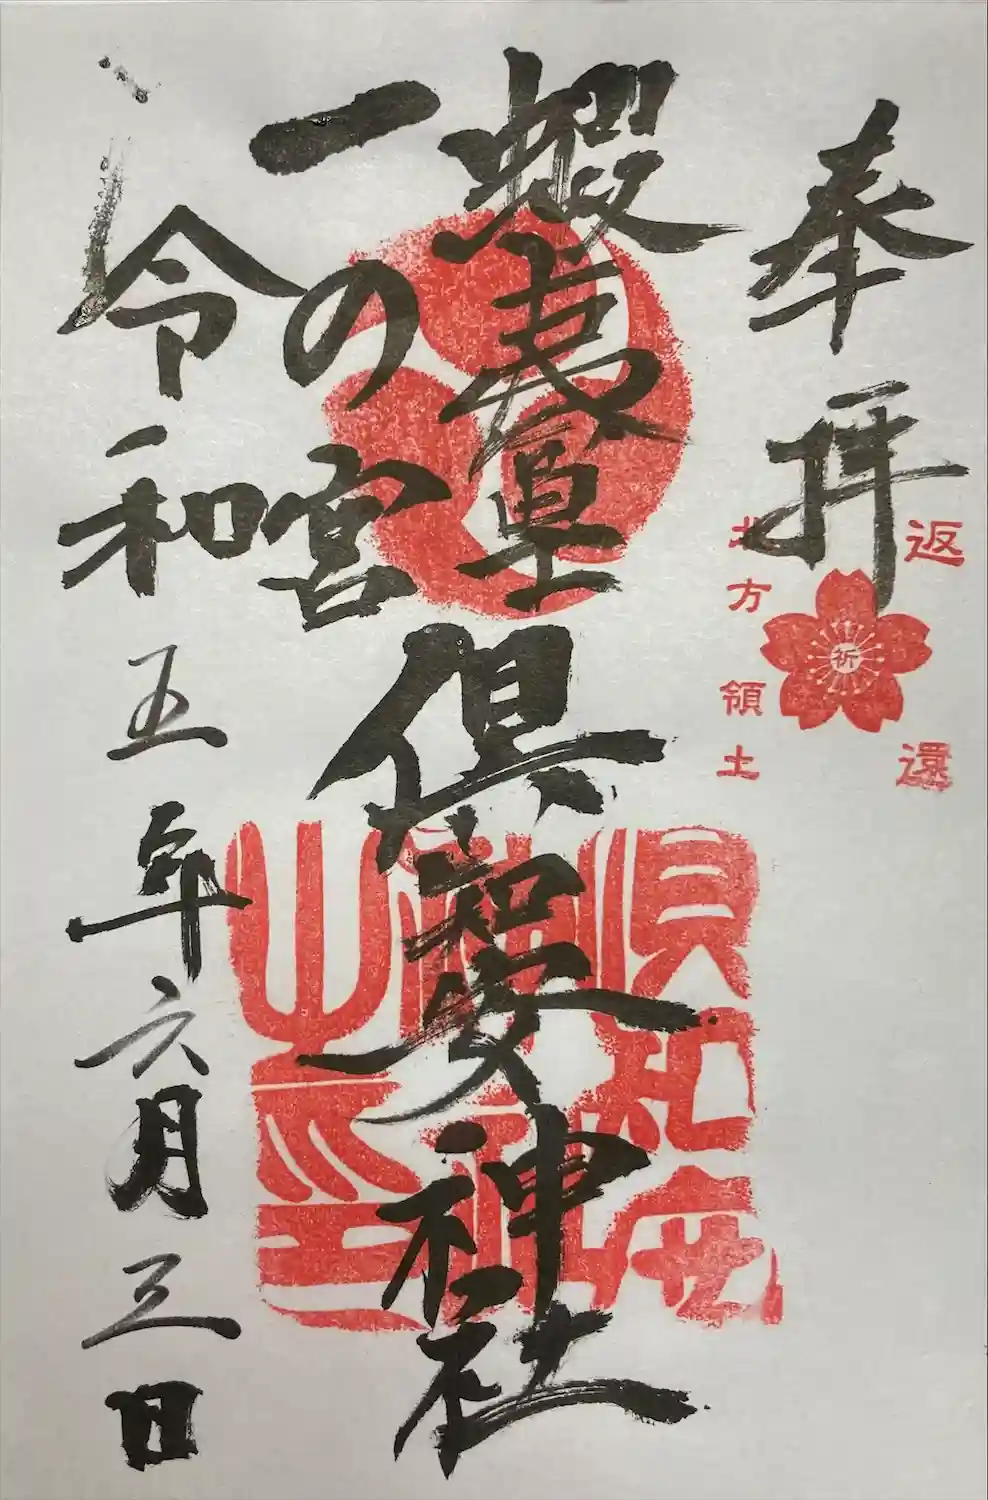 奉拝
返還
祈
北方領土
蝦夷
一の宮
倶知安神社
令和五年六月三日